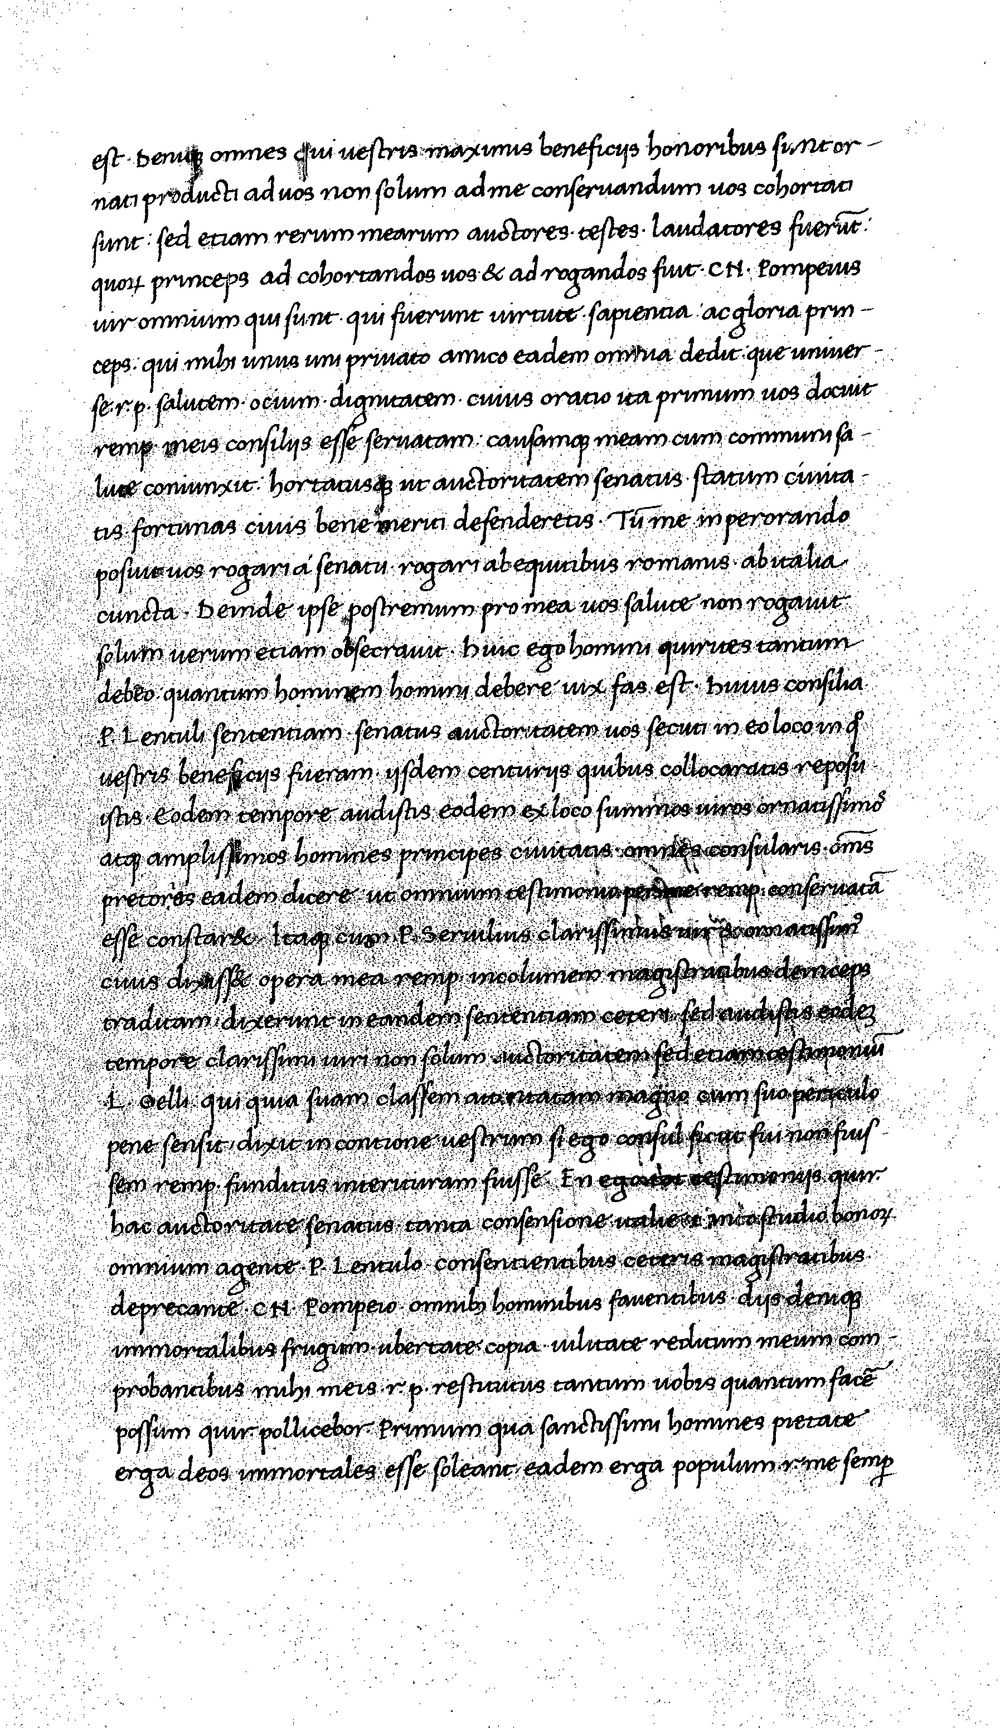 est. Deniq; omnes qui uestris maximis beneficijs honoribus sunt or-
nati producti ad uos non solum ad me conseruandum uos cohortati
sunt: sed etiam rerum mearum auctores. testes. laudatores fuerūt:
quoꝝ princeps ad cohortandos uos & ad rogandos fuit. CN. Pompeius
uir omnium qui sunt. qui fuerunt uirtute. sapientia. ac gloria prin-
ceps. qui mihi unus uni priuato amico eadem omnia dedit. que uniuer-
se. r. p. salutem. ocium. dignitatem. cuius oratio ita primum uos docuit
remp. meis consilijs esse seruatam: causamq; meam cum communi sa-
lute coniunxit: hortatusq; ut auctoritatem senatus. statum ciuita-
tis fortunas ciuis bene meriti defenderetis. Tū me in perorando
posuit uos rogari á senatu. rogari ab equitibus romanis. ab italia
cuncta. Deinde ipse postremum pro mea uos salute non rogauit
solum uerum etiam obsecrauit. Huic ego homini quirites tantum
debeo. quantum hominem homini debere uix fas est. Huius consilia
P. Lentuli sententiam. senatus auctoritatem uos secuti in eo loco in q̊
uestris beneficijs fueram. ijsdem centurijs quibus collocaratis reposu-
istis. Eodem tempore audistis eodem ex loco summos uiros ornatissimoˢ
atq; amplissimos homines principes ciuitatis. omnes consularis. om̄s
pretores eadem dicere. ut omnium testimonio per me remp. conseruatā
esse constaret. Itaq; cum P. Seruilius clarissimus uir & ornatissimꝰ
ciuis dixisset opera mea remp. incolumem magistratibus deinceps
traditam. dixerunt in eandem sententiam ceteri. sed audistis eodeꝫ
tempore clarissimi uiri non solum auctoritatem sed etiam testimoniū
L. Gelli. qui quia suam classem magno cum suo periculo
pene sensit. dixit in contione uestrum si ego consul fui non fuis-
sem remp. funditus interituram fuisse. En ego tot testimonijs quir.
hac auctoritate senatus. tanta consensione italie studio bonoꝝ
omnium agente. P. Lentulo. consentientibus ceteris magistratibus.
deprecante. CN. Pompeio. omnib; hominibus fauentibus. dijs deniq;
immortalibus frugum. ubertate. copia. uilitate reditum meum com-
probantibus mihi meis. r. p. restitutus tantum uobis quantum facē
possum quir. pollicebor. Primum qua sanctissimi homines pietate
erga deos immortales esse soleant. eadem erga populum. r. me semꝑ